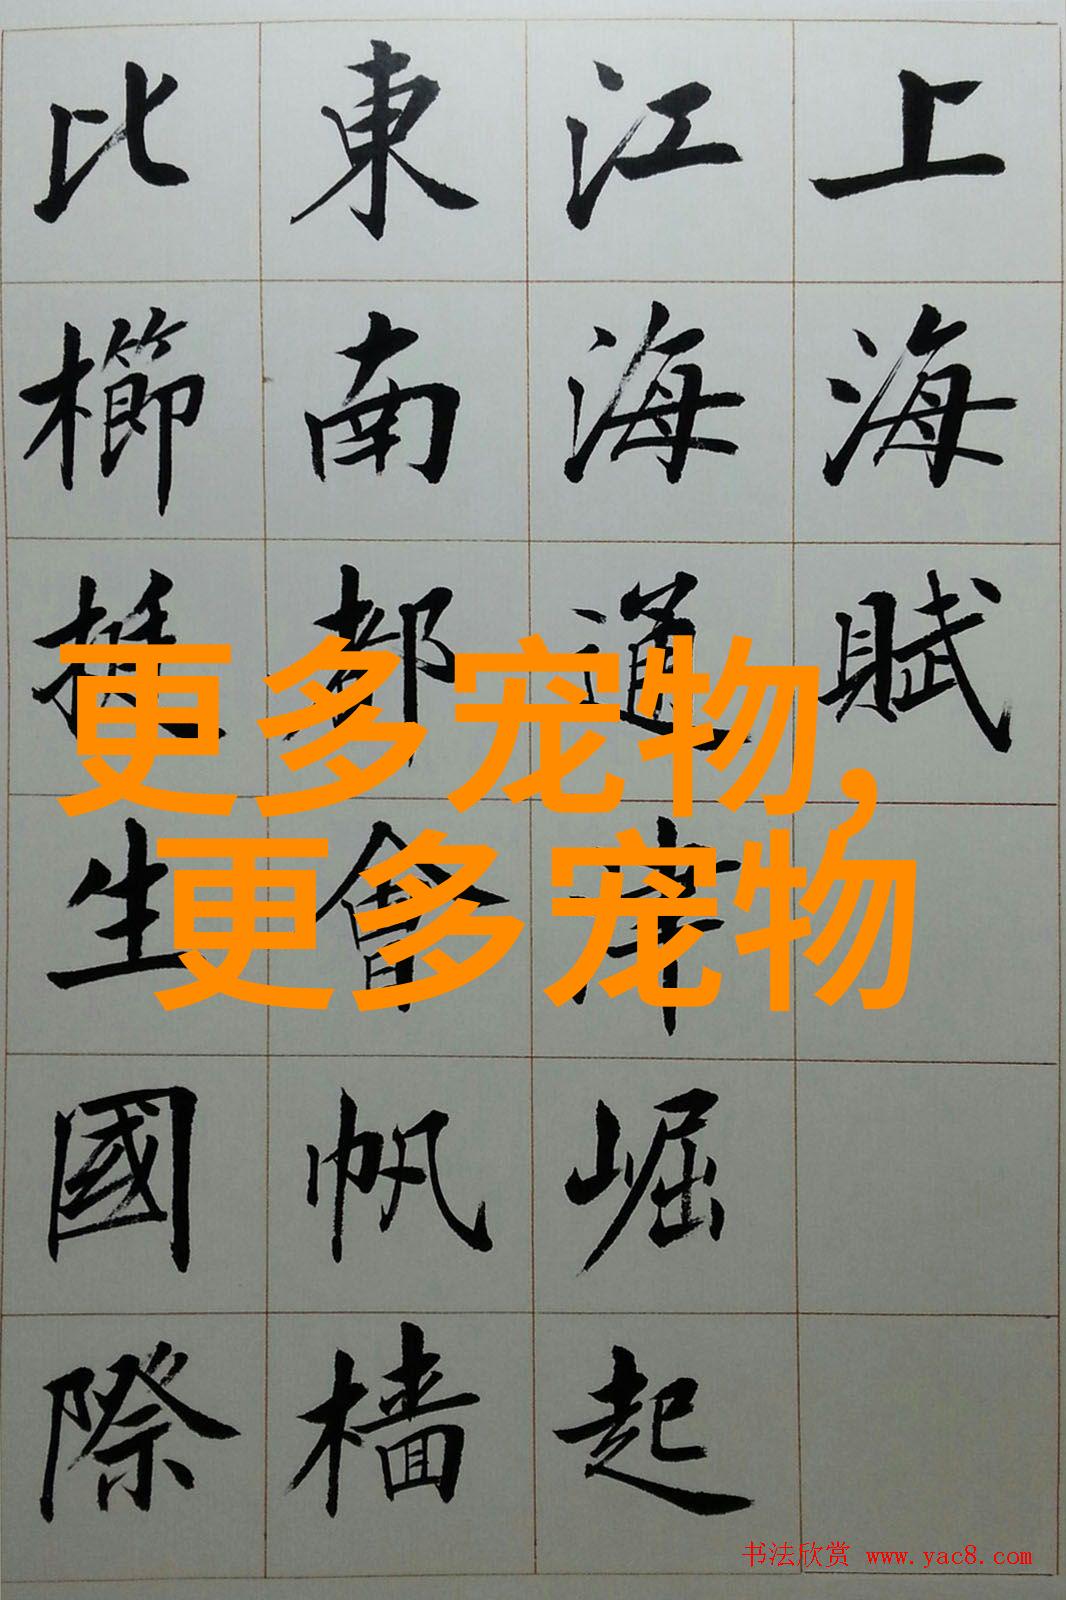 上海賦
江海通津崛起
東南都會帆檣
比櫛挺生國際
更多宠物,
更多宠物
书法欣赏 www.yac8.com